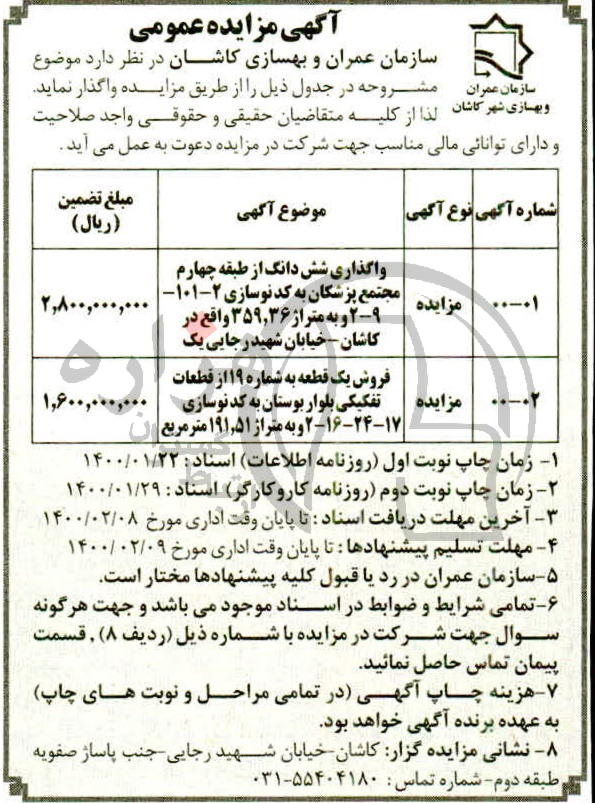 آگهی مزایده عمومی
سازمان عمران
و بهسازی شهر کاشان
سازمان عمران و بهسازی کاشان در نظر دارد موضوع
مشروحه در جدول ذیل را از طریق مزایده واگذار نماید.
لذا از کلیه متقاضیان حقیقی و حقوقی واجد صلاحیت
و دارای توانائی مالی مناسب جهت شرکت در مزایده دعوت به عمل می آید.
شماره آگهی نوع آگهی موضوع آگهی مبلغ تضمین
(ریال)
۰۰-۰۱ مزایده واگذاری شش دانگ از طبقه چهارم
مجتمع پزشکان به کد نوسازی ۲-۱۰۱-
۹-۲ و به متراژ ۳۵۹,۳۶ واقع در
کاشان-خیابان شهید رجایی یک
۲,۸۰۰,۰۰۰,۰۰۰
۰۰-۰۲ مزایده فروش یک قطعه به شماره ۱۹ از قطعات
تفکیکی بلوار بوستان به کد نوسازی
۱۷-۲۴-۱۶-۲ و به متراژ ۱۹۱,۵۱ متر مربع
۱,۶۰۰,۰۰۰,۰۰۰
۱- زمان چاپ نوبت اول (روزنامه اطلاعات) اسناد: ۱۴۰۰/۰۱/۲۲
۲- زمان چاپ نوبت دوم (روزنامه کار و کارگر) اسناد: ۱۴۰۰/۰۱/۲۹
۳- آخرین مهلت دریافت اسناد: تا پایان وقت اداری مورخ ۱۴۰۰/۰۲/۰۸
۴- مهلت تسلیم پیشنهادها: تا پایان وقت اداری مورخ ۱۴۰۰/۰۲/۰۹
۵-سازمان عمران در رد یا قبول کلیه پیشنهادها مختار است.
۶-تمامی شرایط و ضوابط در اسناد موجود می باشد و جهت هرگونه
سوال جهت شرکت در مزایده با شماره ذیل (ردیف ۸) , قسمت
پیمان تماس حاصل نمائید.
۷-هزینه چاپ آگهی (در تمامی مراحل و نوبت های چاپ)
به عهده برنده آگهی خواهد بود.
۸- نشانی مزایده گزار: کاشان-خیابان شهید رجایی-جنب پاساژ صفویه
طبقه دوم-شماره تماس: ۵۵۴۰۴۱۸۰-۰۳۱